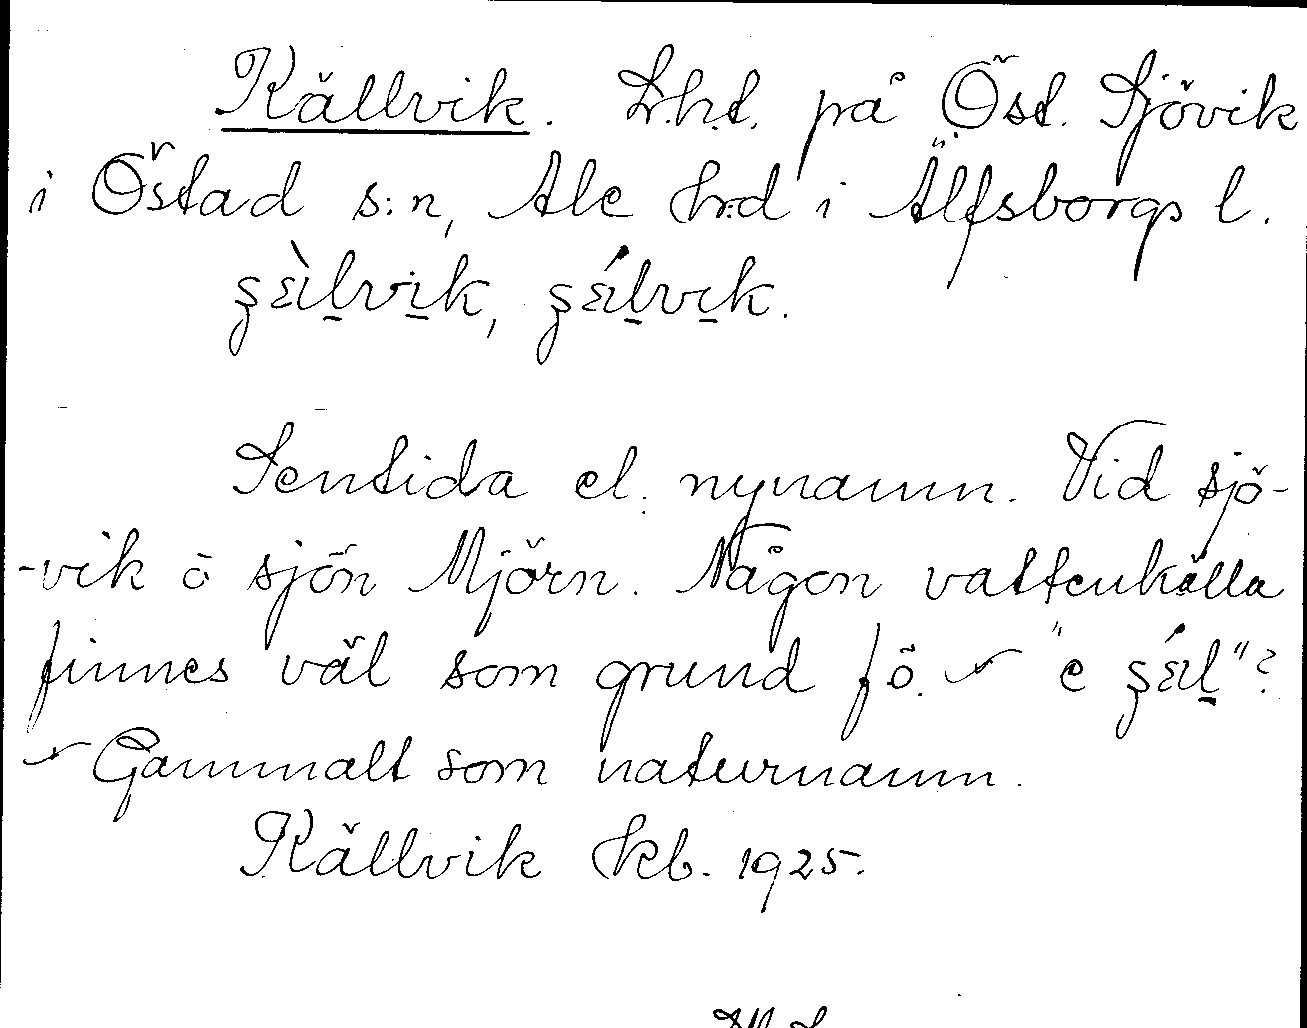 Källvik. L.h.t. på Öst. Sjövik
i Östad s:n, Ale hrd i Älfsborgs l.
ʂɛ̀lvik, ʂɛ́lvik.
Sentida el. nynamn. Vid sjö-
-vik ō sjön Mjörn. Någon vattenkälla
finnes väl som grund fö. "e ʂɛ́l"?
Gammalt som naturnamn.
Källvik Hkb. 1925.